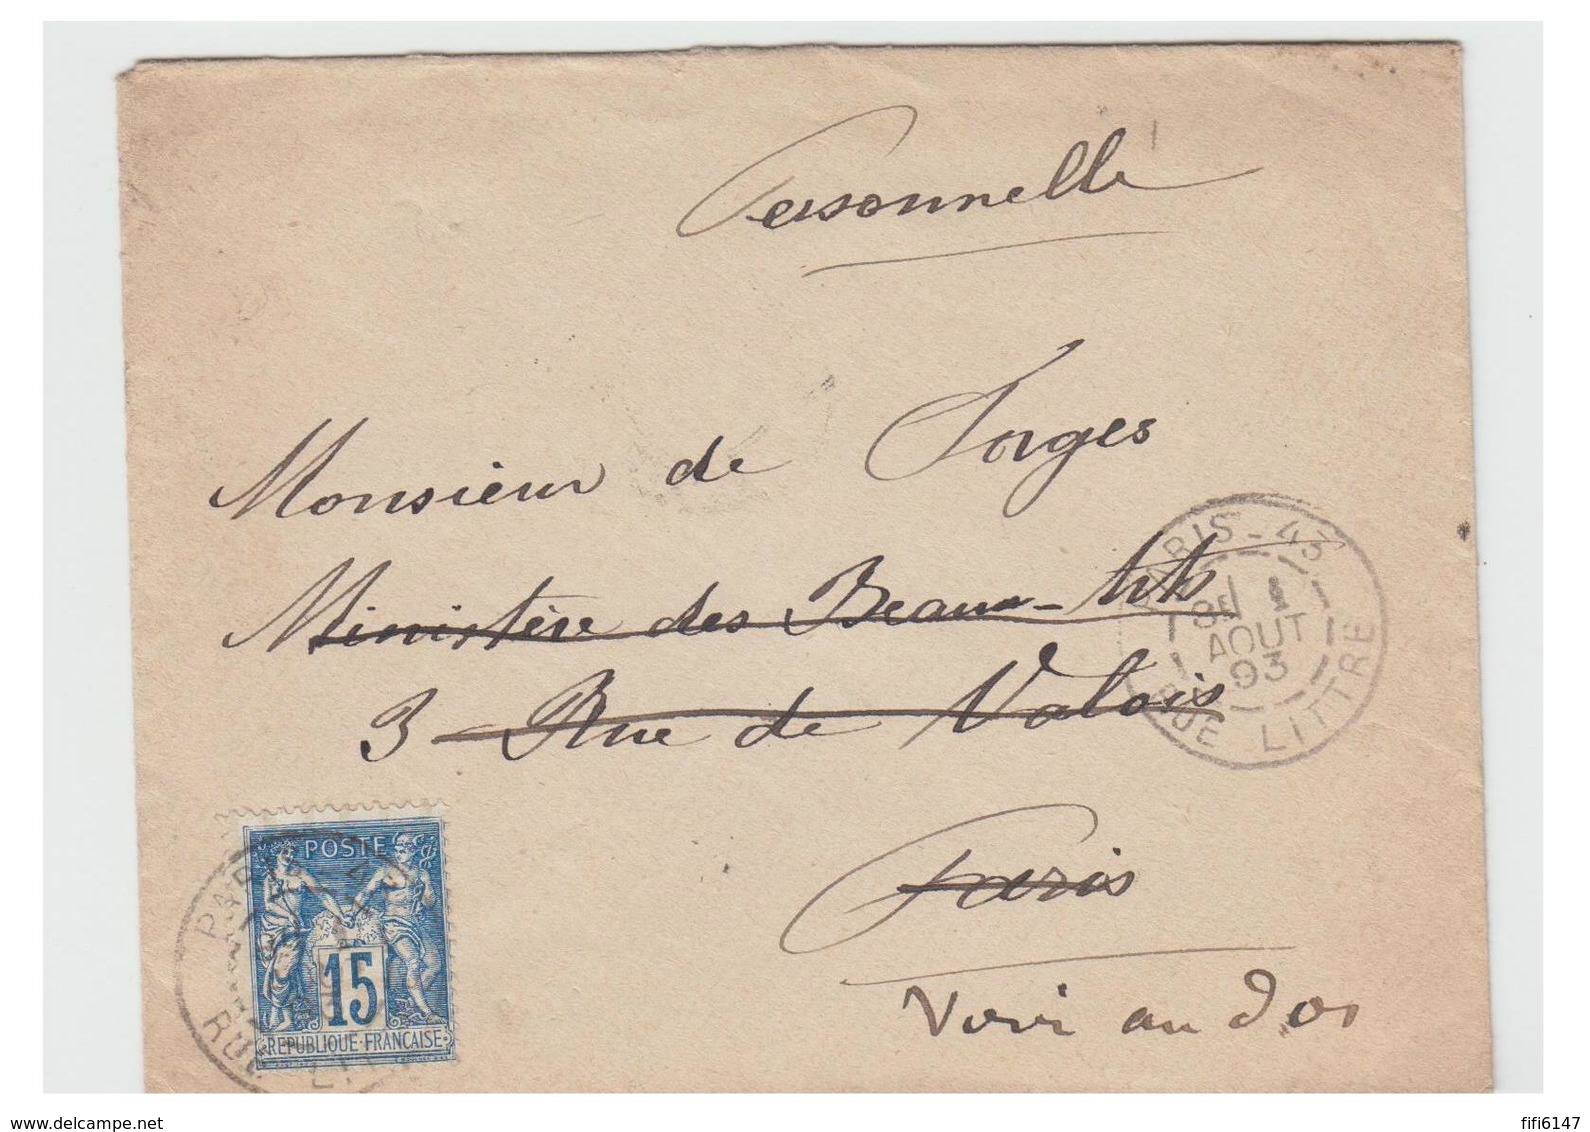 Personnelle
Monsieur de Sorges
Ministère des Beaux-Arts
3 - Rue de Valois
Paris
Voir au Dos
PARIS - 43
AOUT
93
RUE LITTRE
POSTE
15
REPUBLIQUE FRANCAISE
PARIS
www.delcampe.net
fifi6147